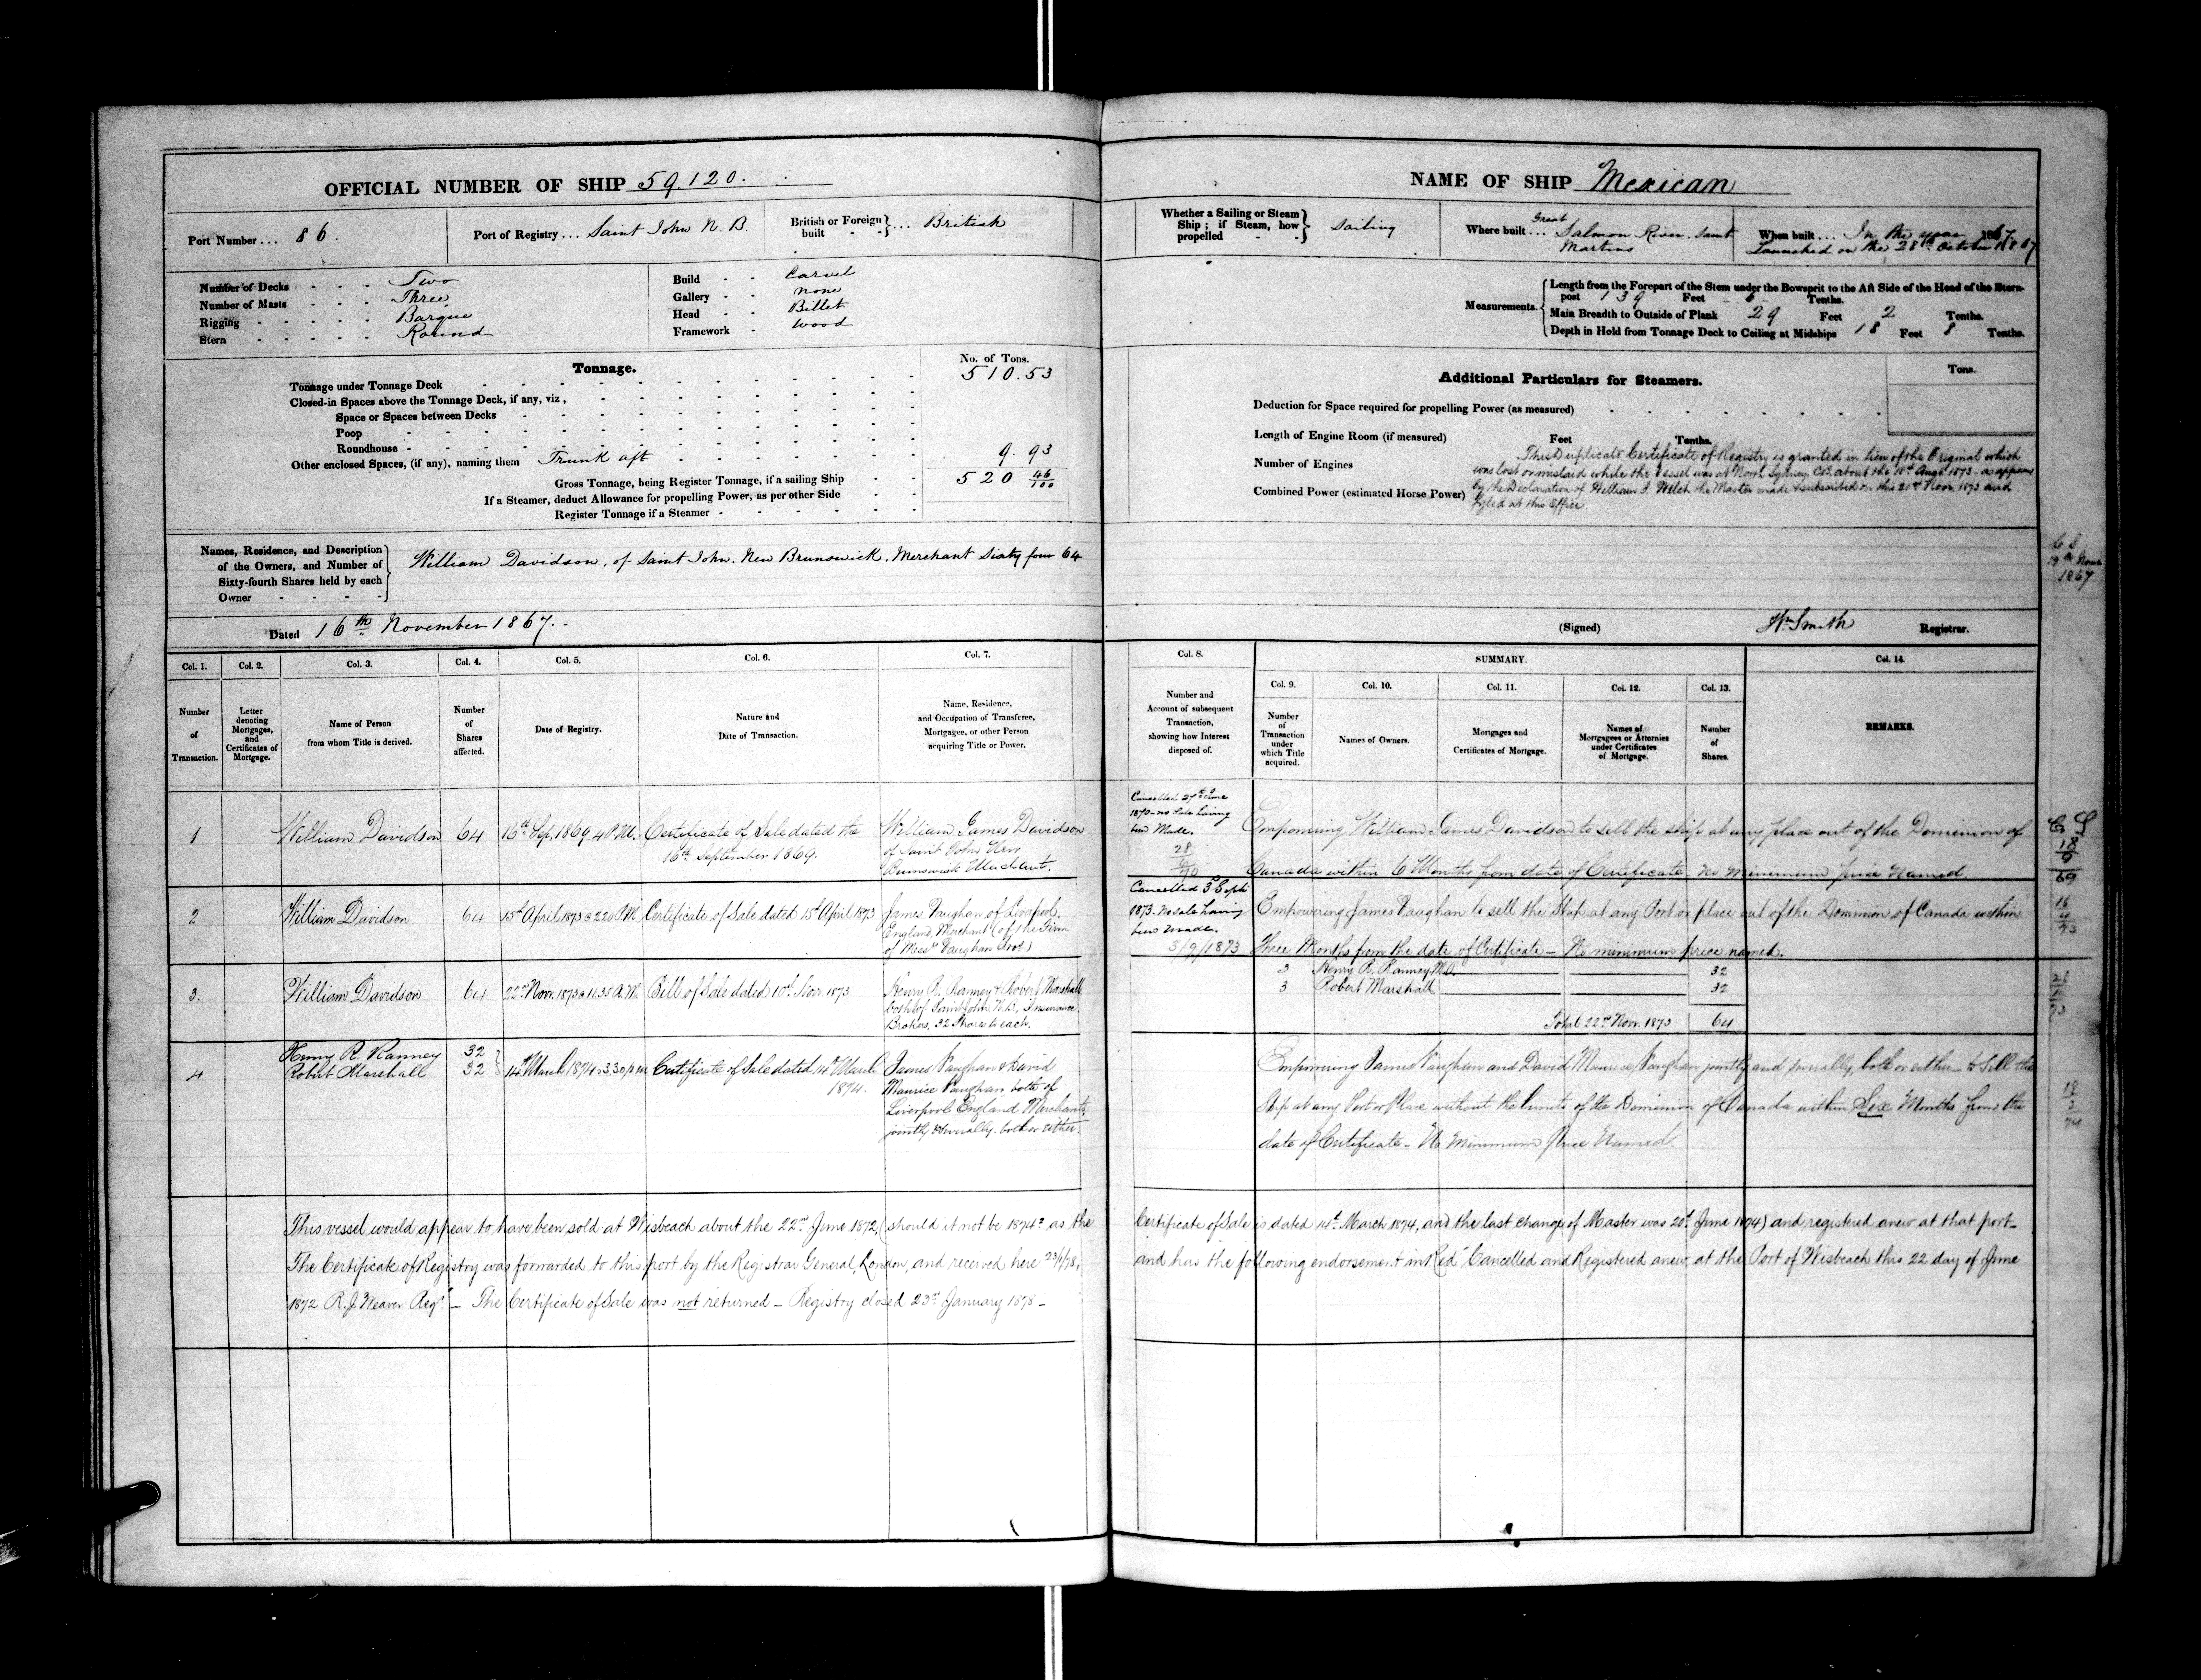 OFFICIAL NUMBER OF SHIP 59.120.
Port Number ... 86.
Port of Registry ... Saint John N. B.
British or Foreign built } ... British
Number of Decks - - - Two
Number of Masts - - - Three
Rigging - - - - - Barque
Stern - - - - - Round
Build - - Carvel
Gallery - - none
Head - - Billet
Framework - Wood
Tonnage.
No. of Tons.
Tonnage under Tonnage Deck 510.53
Closed-in Spaces above the Tonnage Deck, if any, viz,
Space or Spaces between Decks
Poop
Roundhouse
Other enclosed Spaces, (if any), naming them Trunk aft 9.93
Gross Tonnage, being Register Tonnage, if a sailing Ship 520 46/100
If a Steamer, deduct Allowance for propelling Power, as per other Side
Register Tonnage if a Steamer
Names, Residence, and Description
of the Owners, and Number of
Sixty-fourth Shares held by each
Owner
William Davidson, of Saint John, New Brunswick, Merchant Sixty four 64
Dated 16th November 1867.
NAME OF SHIP Mexican
Whether a Sailing or Steam
Ship; if Steam, how
propelled
Sailing
Where built ... Great Salmon River, Saint
Martins
When built ... In the year 1867
Launched on the 28th October 1867
Measurements.
Length from the Forepart of the Stem under the Bowsprit to the Aft Side of the Head of the Stern-
post 139 Feet 6 Tenths.
Main Breadth to Outside of Plank 29 Feet 2 Tenths.
Depth in Hold from Tonnage Deck to Ceiling at Midships 18 Feet 8 Tenths.
Additional Particulars for Steamers.
Tons.
Deduction for Space required for propelling Power (as measured)
Length of Engine Room (if measured) Feet Tenths.
Number of Engines
Combined Power (estimated Horse Power)
This Duplicate Certificate of Registry is granted in lieu of the Original which
was lost or mislaid while the Vessel was at North Sydney, C.B. about the 18th Augt 1873 - as appears
by the Declaration of William J. Welch the Master made & subscribed on this 21st Novr. 1873 and
fyled at this Office.
C S
19th Novr
1867
(Signed) Wm Smith Registrar.
Col. 1. Col. 2. Col. 3. Col. 4. Col. 5. Col. 6. Col. 7.
Number of Transaction.
Letter denoting Mortgages, and Certificates of Mortgage.
Name of Person from whom Title is derived.
Number of Shares affected.
Date of Registry.
Nature and Date of Transaction.
Name, Residence, and Occupation of Transferee, Mortgagee, or other Person acquiring Title or Power.
Col. 8. SUMMARY. Col. 14.
Col. 9. Col. 10. Col. 11. Col. 12. Col. 13.
Number and Account of subsequent Transaction, showing how Interest disposed of.
Number of Transaction under which Title acquired.
Names of Owners.
Mortgages and Certificates of Mortgage.
Names of Mortgagees or Attornies under Certificates of Mortgage.
Number of Shares.
REMARKS.
1 William Davidson 64 16th Sep. 1869, 4 P.M. Certificate of Sale dated the
16th September 1869.
William James Davidson
of Saint John New
Brunswick Merchant.
Cancelled 27th June
1870 - no Sale having
been Made.
28
6
70
Empowering William James Davidson to sell the ship at any place out of the Dominion of
Canada within 6 Months from date of Certificate, no minimum price named
C S
18
9
69
2 William Davidson 64 15th April 1873 @ 2.20 P.M. Certificate of Sale dated 15th April 1873
James Vaughan of Liverpool,
England, Merchant (of the Firm
of Messrs Vaughan Bros)
Cancelled 3d Sept
1873. No sale having
been made.
3/9/1873
Empowering James Vaughan to sell the Ship at any Port or place out of the Dominion of Canada within
Three Months from the date of Certificate - No minimum price named.
16
4
73
3. William Davidson 64 22nd Nov. 1873 @ 11.35 A.M. Bill of Sale dated 10th Nov. 1873
Henry R. Ranney & Robert Marshall
both of Saint John N.B., Insurance
Brokers, 32 Shares to each.
3 Henry R. Ranney 32
3 Robert Marshall 32
Total 22nd Nov. 1873 64
4 Henry R. Ranney 32
Robert Marshall 32
14th March 1874 @ 3.30 p.m. Certificate of Sale dated 14th March
1874.
James Vaughan & David
Maurice Vaughan, both of
Liverpool England Merchants,
jointly & severally, both or either.
Empowering James Vaughan and David Maurice Vaughan jointly and severally, both or either - to Sell the
Ship at any Port or Place without the limits of the Dominion of Canada within Six Months from the
date of Certificate - No Minimum Price Named.
18
3
74
This vessel would appear to have been sold at Wisbeach about the 22nd June 1872, (should it not be 1874? as the Certificate of Sale is dated 14th March 1874, and the last change of Master was 20th June 1874) and registered anew at that port -
The Certificate of Registry was forwarded to this port by the Registrar General, London, and received here 23/1/78, and has the following endorsement in Red "Cancelled and Registered anew, at the Port of Wisbeach this 22 day of June
1872 R. J. Weaver Regr" - The Certificate of Sale was not returned - Registry closed 23rd January 1878 -